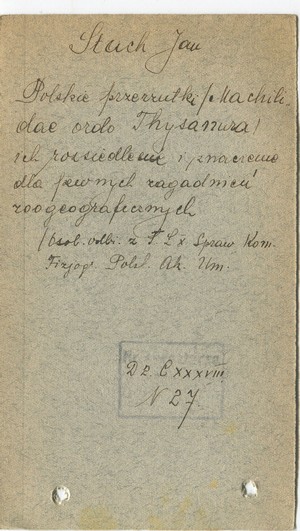 Stach Jan
Polskie przerzutki /Machili,
dae ordo Thysanura/
ich rossiedlenie i znaczenie
dla pewnych zagadnień
zoogeograficznych
/Osob. odbi. z T. LX Spraw Kom.
Fizjogr. Polsk. Ak. Um.
Dz. CXXXVIII
N 27